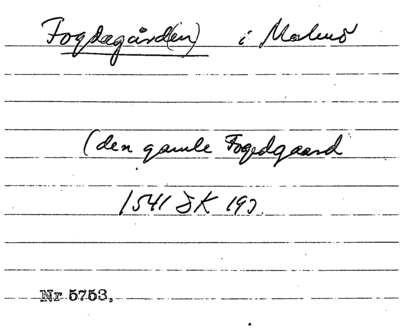 Fogdagård(en) i Malmö
(den gamle Fogedgaard
1541 SK 197
Nr 5753.